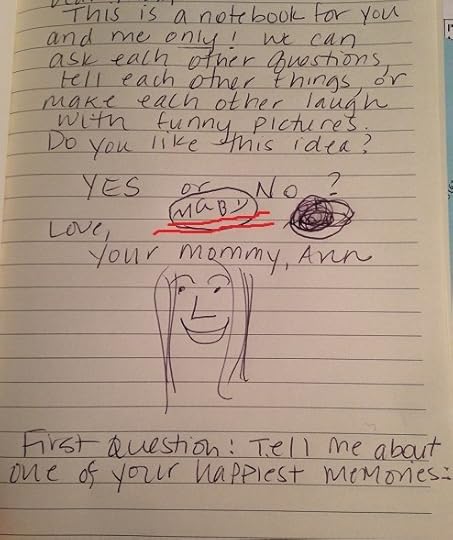 This is a notebook for you
and me only! we can
ask each other questions,
tell each other things, or
make each other laugh
with funny pictures.
Do you like this idea?
YES or No ?
MABY
Love,
Your mommy, Ann
First Question: Tell me about
one of your happiest memories: